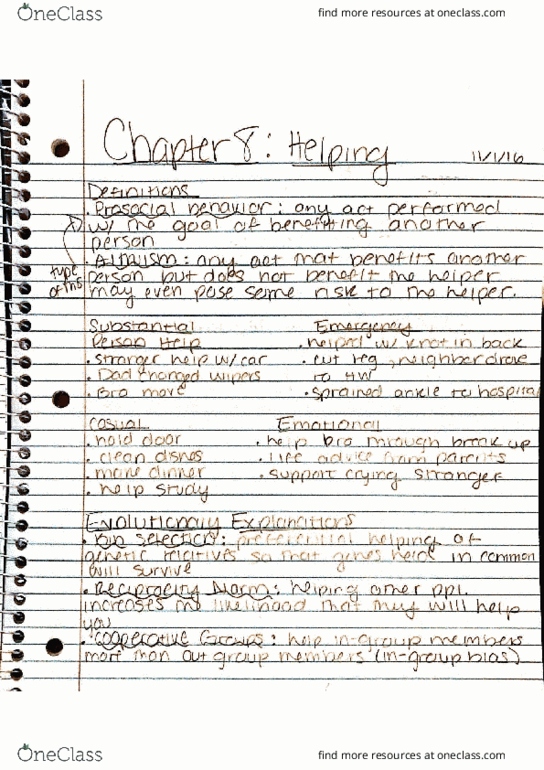 OneClass
find more resources at oneclass.com
Chapter 8: Helping
11/1/16
Definitions
• Prosocial behavior: any act performed
w/ the goal of benefitting another
person
• Altruism: any act that benefits another
type of this
person but does not benefit the helper
may even pose some risk to the helper.
Substantial
Emergency
Person Help
• helped w/ knot in back
• stranger help w/ car
• cut leg, neighbor drove
• Dad changed wipers
to HW
• Bro move
• sprained ankle to hospital
Casual
Emotional
• hold door
• help bro through break up
• clean dishes
• life advice from parents
• make dinner
• support crying stranger
• help study
Evolutionary Explanations
• Kin selection: preferential helping of
genetic relatives so that genes held in common
will survive
• Reciprocity Norm: helping other ppl.
increases the likelihood that they will help
you
• Cooperative Groups: help in-group members
more than out group members (in-group bias)
OneClass
find more resources at oneclass.com